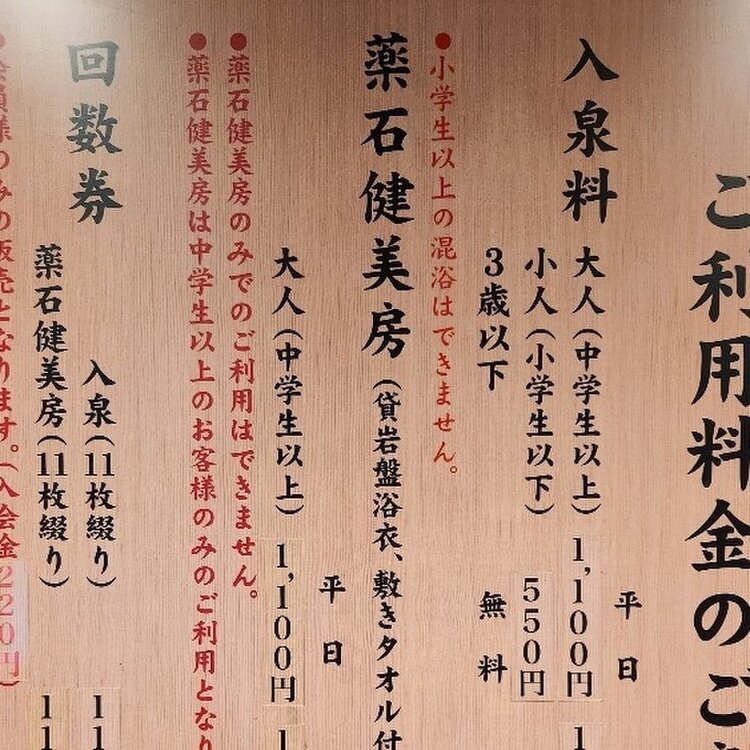 ご利用料金のご
平日
入泉料
大人(中学生以上) 1,100円 1
小人(小学生以下) 550円
3歳以下 無料
●小学生以上の混浴はできません。
薬石健美房(貸岩盤浴衣、敷きタオル付
平日
大人(中学生以上) 1,100円 1
●薬石健美房のみでのご利用はできません。
●薬石健美房は中学生以上のお客様のみのご利用となり
回数券
入泉(11枚綴り) 11
薬石健美房(11枚綴り) 11
●会員様のみの販売となります。(入会金220円)